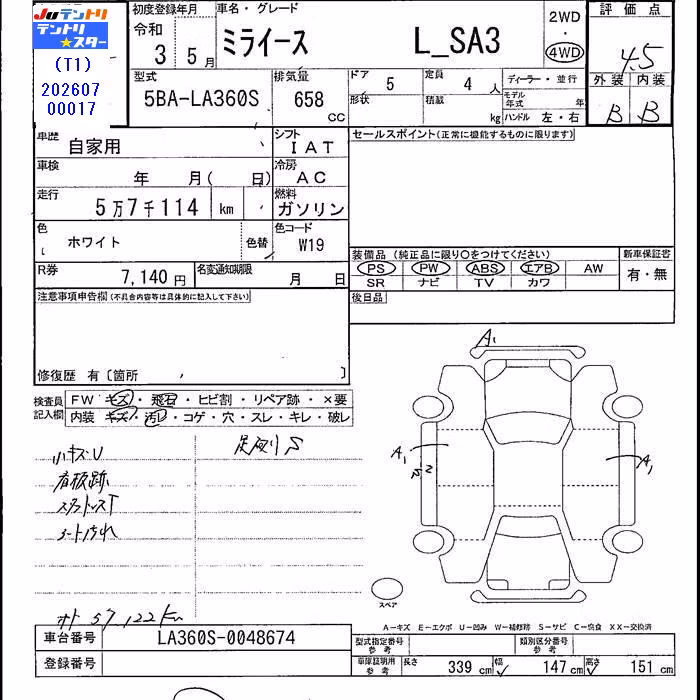 JUテントリ
テントリ
★スター
(T1)
202607
00017
初度登録年月
令和
3 5 月
車名・グレード
ミライース L_SA3
2WD
・
4WD
評価点
4.5
外装 内装
B B
型式
5BA-LA360S
排気量
658
CC
ドア
5
定員
4 人
ディーラー・並行
形状
積載
kg
モデル年式 年
ハンドル 左・右
車歴
自家用
シフト
IAT
セールスポイント(正常に機能するものに限ります)
車検
年 月( 日)
冷房
AC
走行
5万7千114 km
燃料
ガソリン
色
ホワイト
色替
色コード
W19
装備品 (純正品に限り○をつけてください)
新車保証書
PS PW ABS エアB AW
有・無
SR ナビ TV カワ
R券
7,140 円
名変通知期限
月 日
後日品
注意事項申告欄(不具合内容等は具体的に記入して下さい)
修復歴 有〔箇所 〕
検査員
記入欄
FW キズ・飛石・ヒビ割・リペア跡・×要
内装 キズ・汚レ・コゲ・穴・スレ・キレ・破レ
小キズU
足廻りS
看板跡
シート汚れ
オト 57,122km
A1
A1
S2
A1
スペア
A-キズ E-エクボ U-凹み W-補修跡 S-サビ C-腐食 XX-交換済
車台番号
LA360S-0048674
登録番号
型式指定番号
参考
類別区分番号
参考
車庫証明用
参考
長さ 339 cm 幅 147 cm 高さ 151 cm